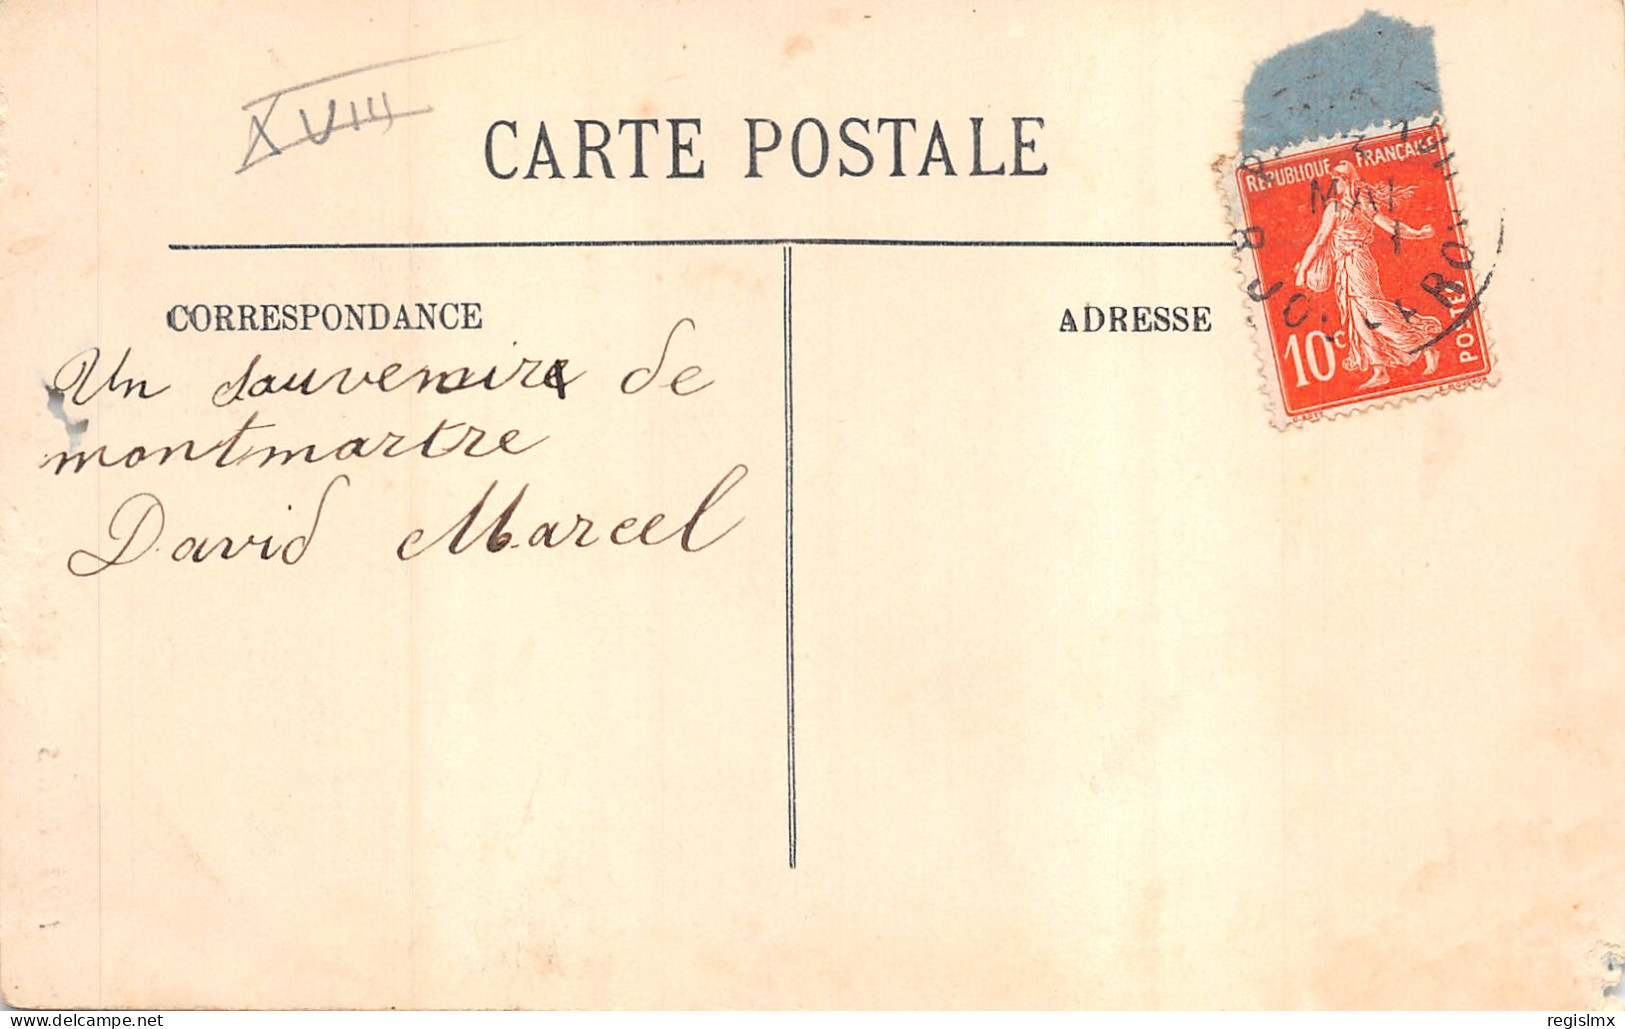 XVIII
CARTE POSTALE
CORRESPONDANCE
ADRESSE
Un souvenir de
montmartre
David Marcel
REPUBLIQUE FRANÇAISE
10c
POSTES
MAI
delcampe.net
regislmx